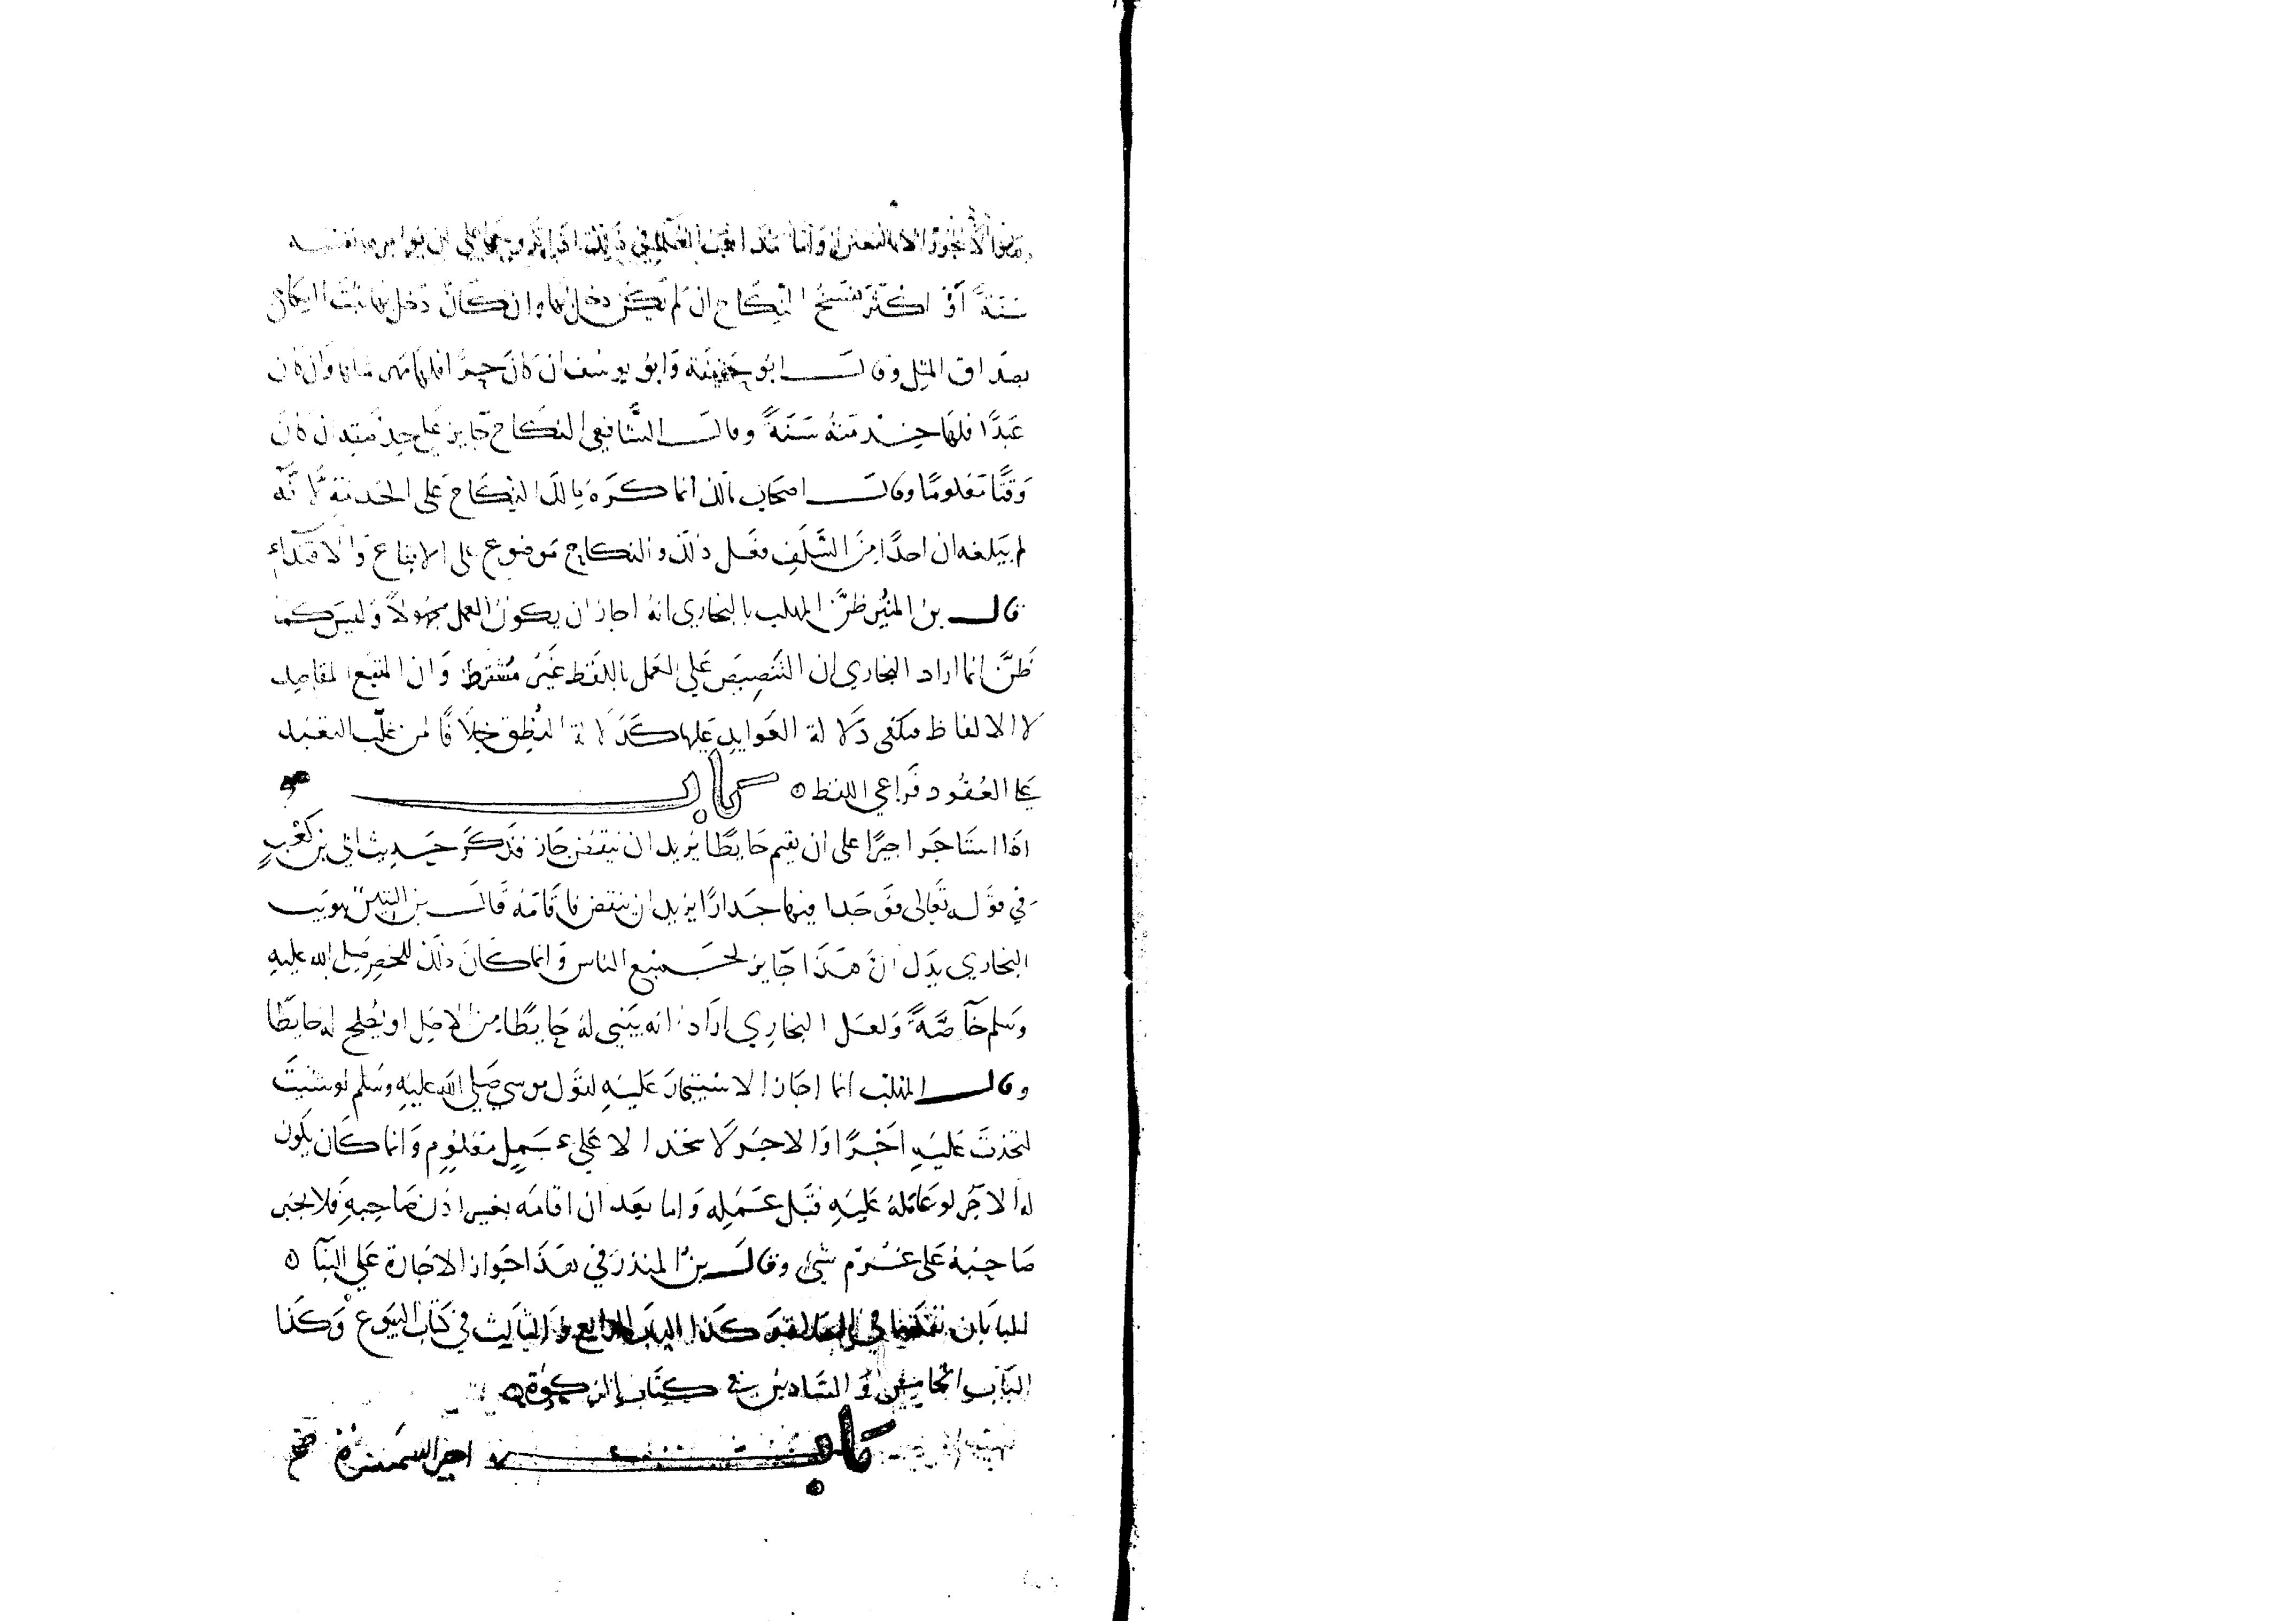 سنة أو اكثر يفسخ النكاح ان لم يكن دخل بها وان كان دخل بها ثبت النكاح
بصداق المثل وقال ابو حنيفة وابو يوسف ان كان حرا فلها مهر مثلها وان كان
عبدا فلها خدمته سنة وقال الشافعي النكاح جايز على خدمته ان كان
وقتا معلوما وقال اصحاب مالك انما كره مالك النكاح على الخدمة لانه
لم يبلغه ان احدا من السلف فعل ذلك والنكاح موضوع على الاتباع والاقتداء
قال بن المنير ظن المهلب بالبخاري انه اجاز ان يكون العمل مجهولا وليس كما
ظن انما اراد البخاري ان التنصيص على العمل باللفظ غير مشترط وان المتبع المقاصد
لا الالفاظ فيكفي دلالة العوايد عليها كدلالة النطق خلافا لمن غلب التعبد
على العقود فراعى اللفظ ٥ باب
اذا استاجر اجيرا على ان يقيم حايطا يريد ان ينقض جاز فذكر حديث ابي بن كعب
في قوله تعالى فوجدا فيها جدارا يريد ان ينقض فاقامه قال بن التين تبويب
البخاري يدل ان هذا جايز لجميع الناس وانما كان ذلك للخضر صلى الله عليه
وسلم خاصة ولعل البخاري اراد انه يبني له حايطا من الاصل او يصلح له حايطا
وقال المهلب انما اجاز الاستيجار عليه لقول موسي صلى الله عليه وسلم لو شئت
لتخذت عليه اجرا والاجر لا يتخذ الا على عمل معلوم وانما كان يكون
له الاجر لو عامله عليه قبل عمله واما بعد ان اقامه بغير اذن صاحبه فلا يجبر
صاحبه على غرم شي وقال بن المنذر في هذا جواز الاجارة على البنا ٥
البابان تقدما في كذا الباب الرابع والثالث في كتاب البيوع وكذا
الباب الخامس والسادس في كتاب الزكوة ٥
باب اجر السمسرة